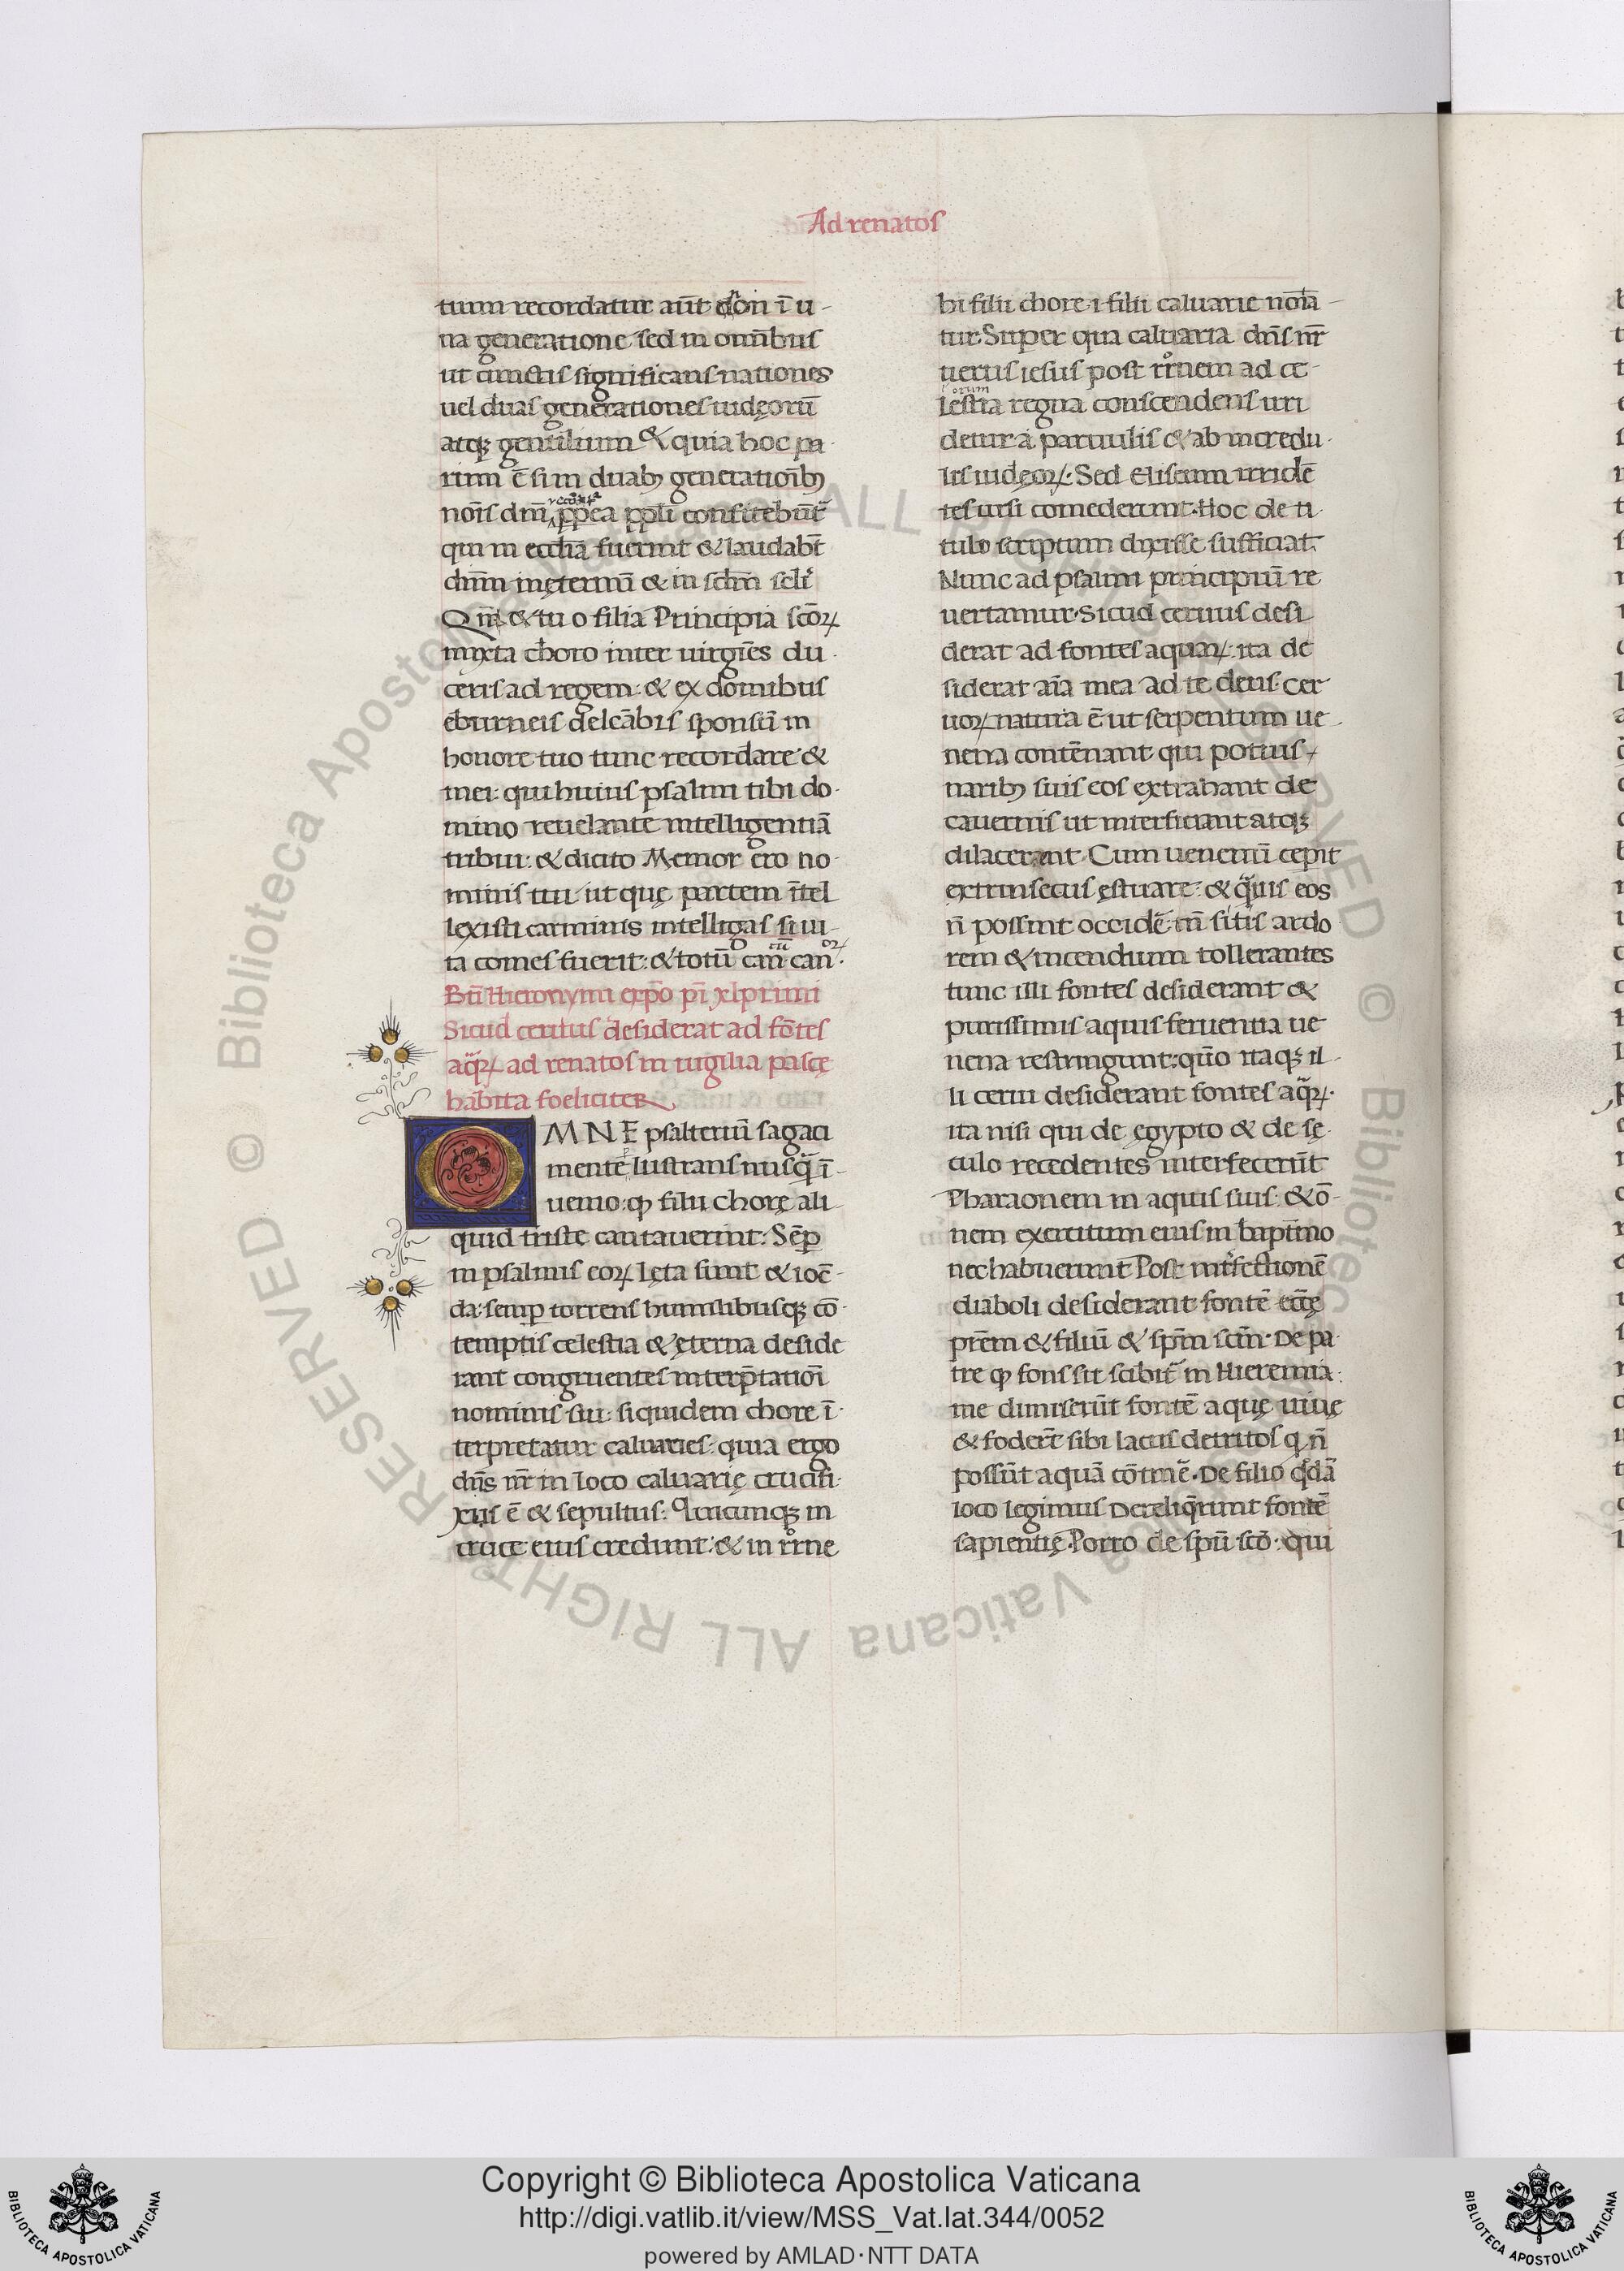 Ad renatos
tuum recordatur aūt non ī u-
na generatione sed in omībus
ut cunctas significans nationes
uel duas generationes iudęorū
atqȝ gentilium & quia hoc pa
rum ē si in duabȝ generatiōibȝ
dn̄i ꝓpea ppl̄i confitebūt̄
qui in eccl̄ia fuerint & laudabt̄
dn̄m in ęternū & in sclm̄ scl̄i
Qn̄ & tu o filia Principia scōꝝ
mixta choro inter uirgiēs du-
ceris ad regem: & ex domibus
eburneis delcābis sponsū in
honore tuo tunc recordare &
mei: qui huius psalmi tibi do-
mino reuelante intelligentiā
tribui: & dicito Memor ero no-
minis tui ut quę partem ītel
lexisti carminis intelligas si ui-
ta comes fuerit: & totū
Bt̄i Hieronymi exp̄o pī xlprimi
Sicud ceruus desiderat ad fōtes
aq̄ꝝ ad renatos in uigilia pascę
habita foeliciter
MNE psalteriū sagaci
mente lustrans nusq̄ ī-
uenio: ꝙ filii chorę ali
quid triste cantauerint: Sēꝑ
in psalmis eoꝝ lęta sunt & iocū-
da: semꝑ torrens humilibusqȝ cō-
temptis celestia & ęterna deside
rant congruentes interp̄tatioī
nominis sui: siquidem chore ī-
terpretatur caluaries: quia ergo
dn̄s nr̄ in loco caluarię crucifi-
xus ē & sepultus: Quicunqȝ in
cruce eius credunt: & in rr̄ne
bi filii chore i filii caluarie noīa-
tur. Super qua caluaria dn̄s nr̄
uerus iesus post rr̄nem ad ce-
orum
lestia regna conscendens irri
detur a paruulis & ab incredu-
lis iudęoꝝ: Sed Eliseum irridē
tes ursi comederunt. Hoc de ti-
tulo scriptum dixisse sufficiat.
Nunc ad psalmi principiū re
uertamur. Sicud ceruus desi
derat ad fontes aquaꝝ: ita de
siderat aīa mea ad te deus. Cer
uoꝝ natura ē ut serpentum ue-
nena contēnant qui potius
naribȝ suis eos extrahant de
cauernis ut interficiant atqȝ
dilacerent. Cum uenenū cepit
extrinsecus ęstuare: & q̄uis eos
n̄ possint occidē: tn̄ sitis ardo
rem & incendium tollerantes
tunc illi fontes desiderant &
purissimis aquis feruentia ue
nena restringunt: quō itaqȝ il-
li cerui desiderant fontes aq̄ꝝ.
ita nisi qui de ęgypto & de sę-
culo recedentes interfecerūt
Pharaonem in aquis suis: & ō-
nem exercitum eius in bapt̄mo
nec habuerunt Post int̄fectionē
diaboli desiderant fontē eccl̄ę
prēm & filiū & sp̄m scm̄. De pa-
tre ꝙ fons sit scibit̄ in Hieremia:
me dimiserūt fontē aquę uiuę
& foder̄e sibi lacus detritos q n̄
possūt aquā cōtinē. De filio q̄dā
loco legimus Dereliq̄runt fontē
sapientię. Porro de sp̄ū scō: qui
Copyright © Biblioteca Apostolica Vaticana
http://digi.vatlib.it/view/MSS_Vat.lat.344/0052
powered by AMLAD·NTT DATA